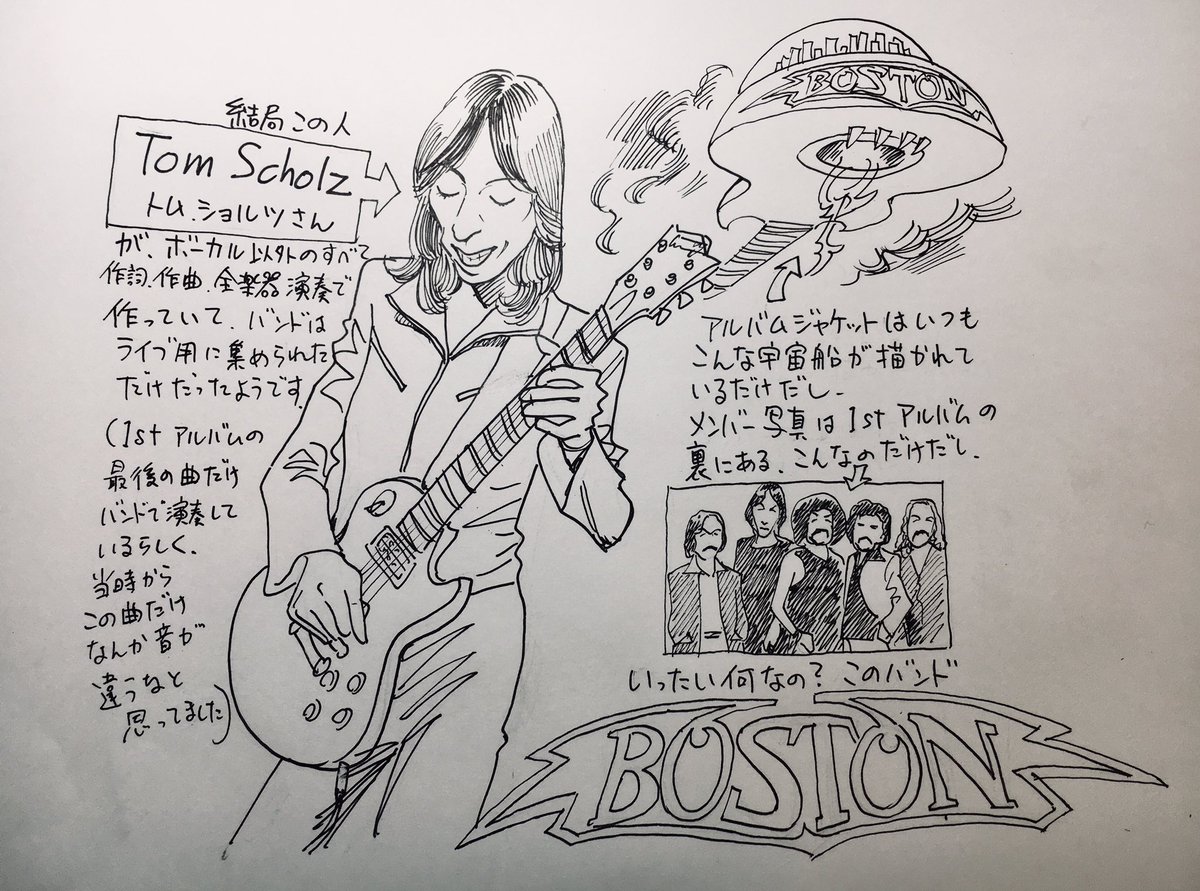 結局この人
Tom Scholz
トム.ショルツさん
が、ボーカル以外のすべて
作詞.作曲.全楽器演奏で
作っていて、バンドは
ライブ用に集められた
だけだったようです.
(1stアルバムの
最後の曲だけ
バンドで演奏して
いるらしく、
当時から
この曲だけ
なんか音が
違うなと
思ってました)
BOSTON
アルバムジャケットはいつも
こんな宇宙船が描かれて
いるだけだし、
メンバー写真は1stアルバムの
裏にある、こんなのだけだし、
いったい何なの?このバンド
BOSTON